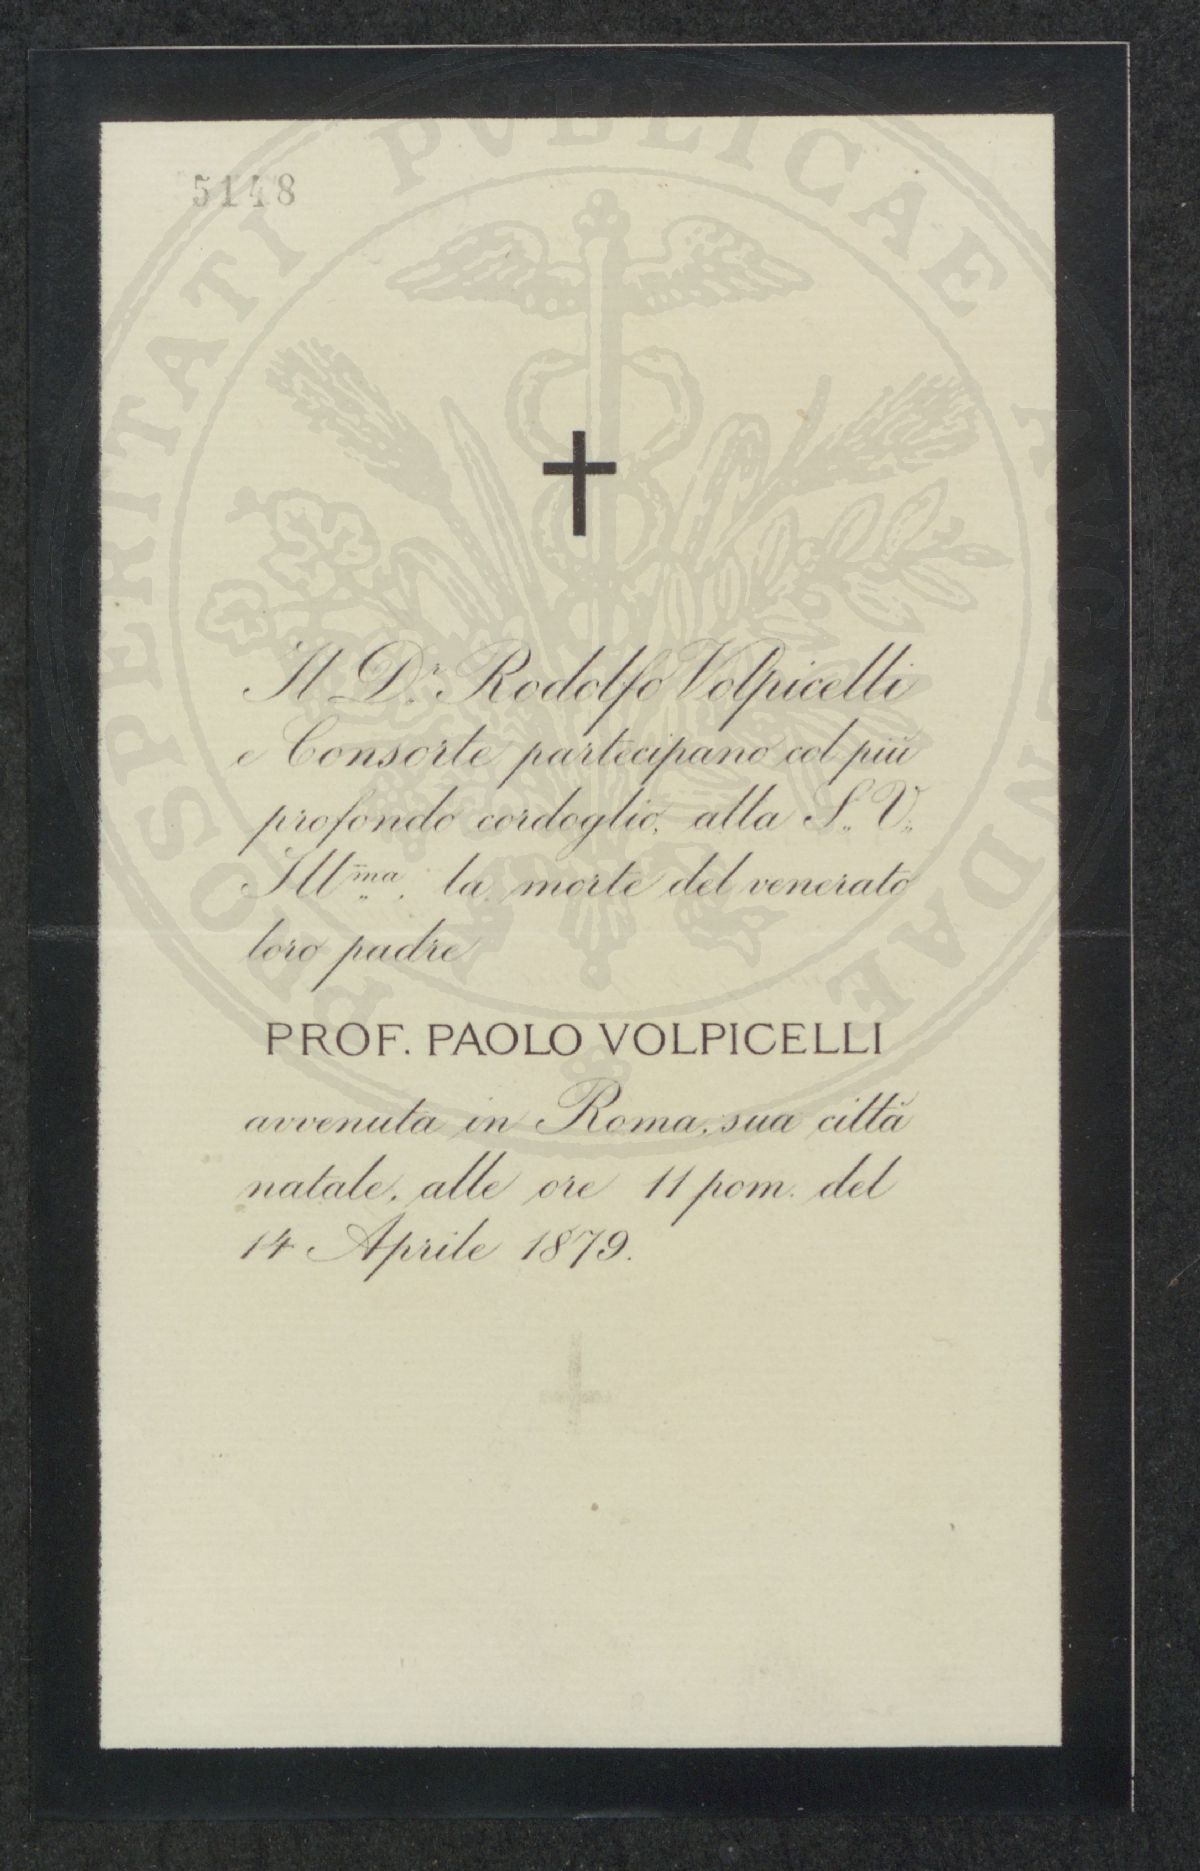 PROSPERITATI PUBLICAE AUGENDAE
5148
Il D.r Rodolfo Volpicelli
e Consorte partecipano col più
profondo cordoglio, alla S. V.
Ill.ma, la morte del venerato
loro padre
PROF. PAOLO VOLPICELLI
avvenuta in Roma, sua città
natale, alle ore 11 pom. del
14 Aprile 1879.